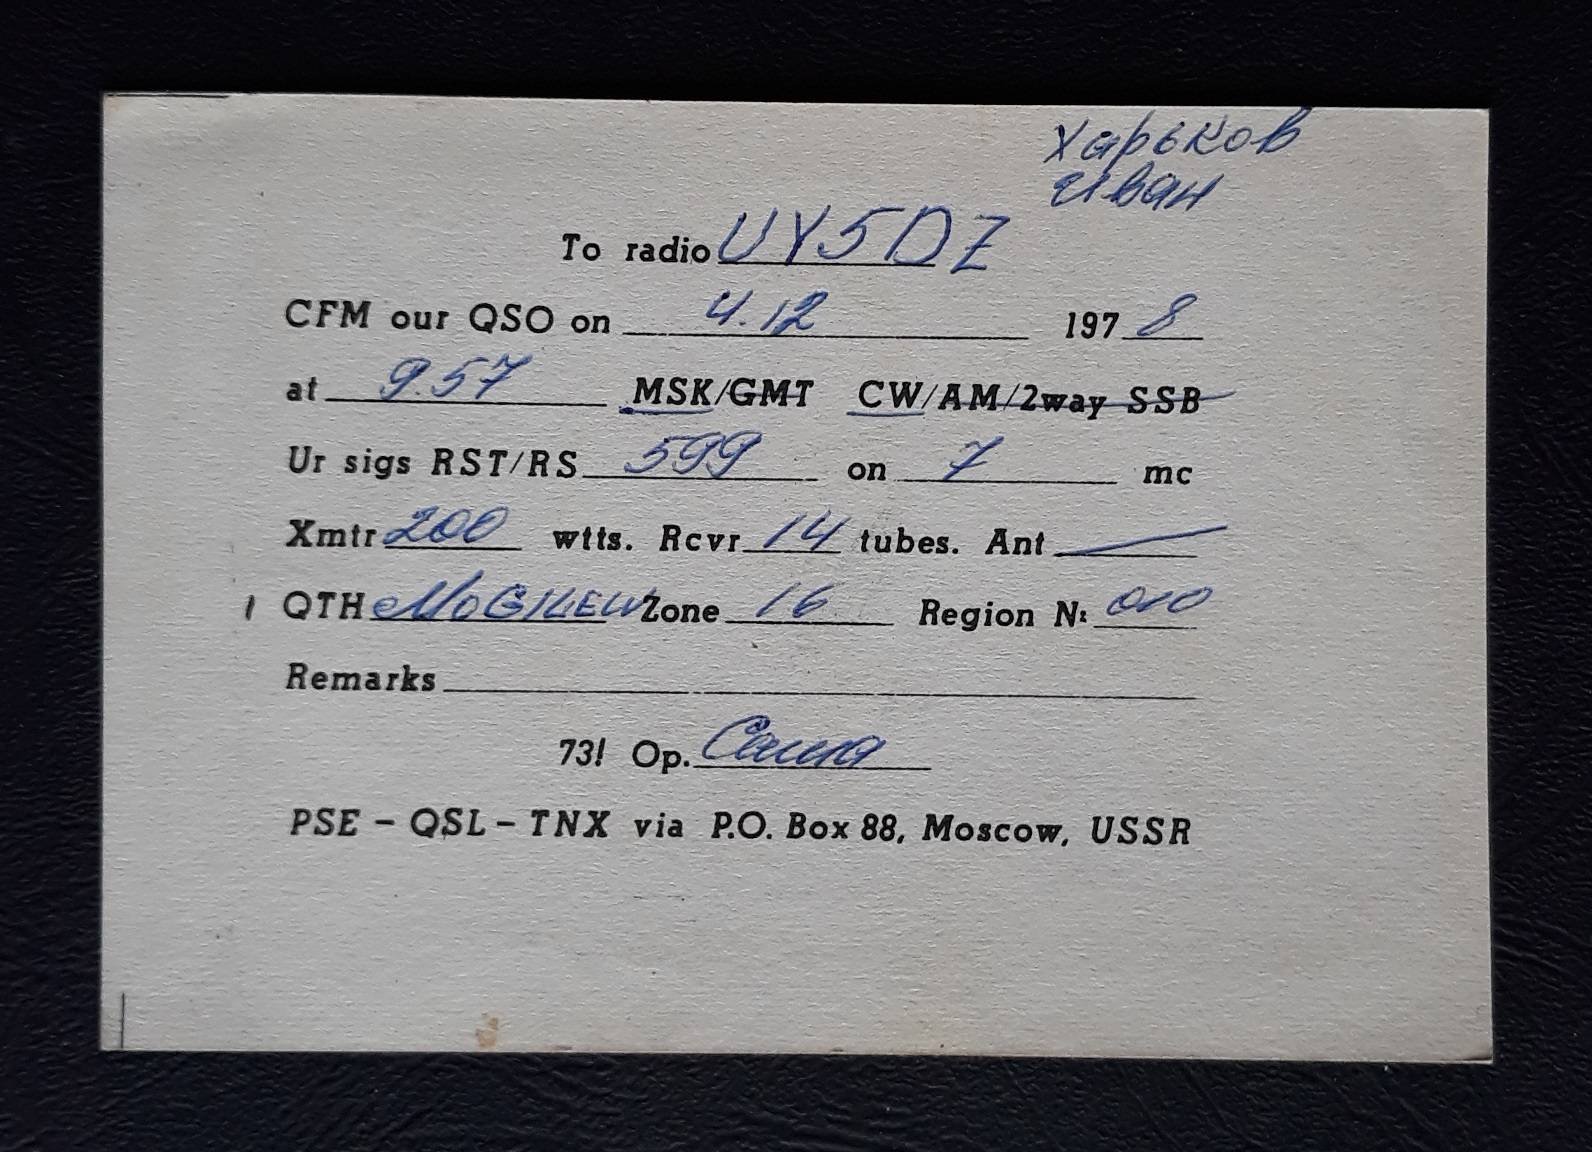 Харьков
Иван
To radio UY5DZ
CFM our QSO on 4.12 1978
at 9.57 MSK/GMT CW/AM/2way SSB
Ur sigs RST/RS 599 on 7 mc
Xmtr 200 wtts. Rcvr 14 tubes. Ant —
QTH MOGILEW Zone 16 Region N: 010
Remarks
73! Op. Саша
PSE – QSL – TNX via P.O. Box 88, Moscow, USSR